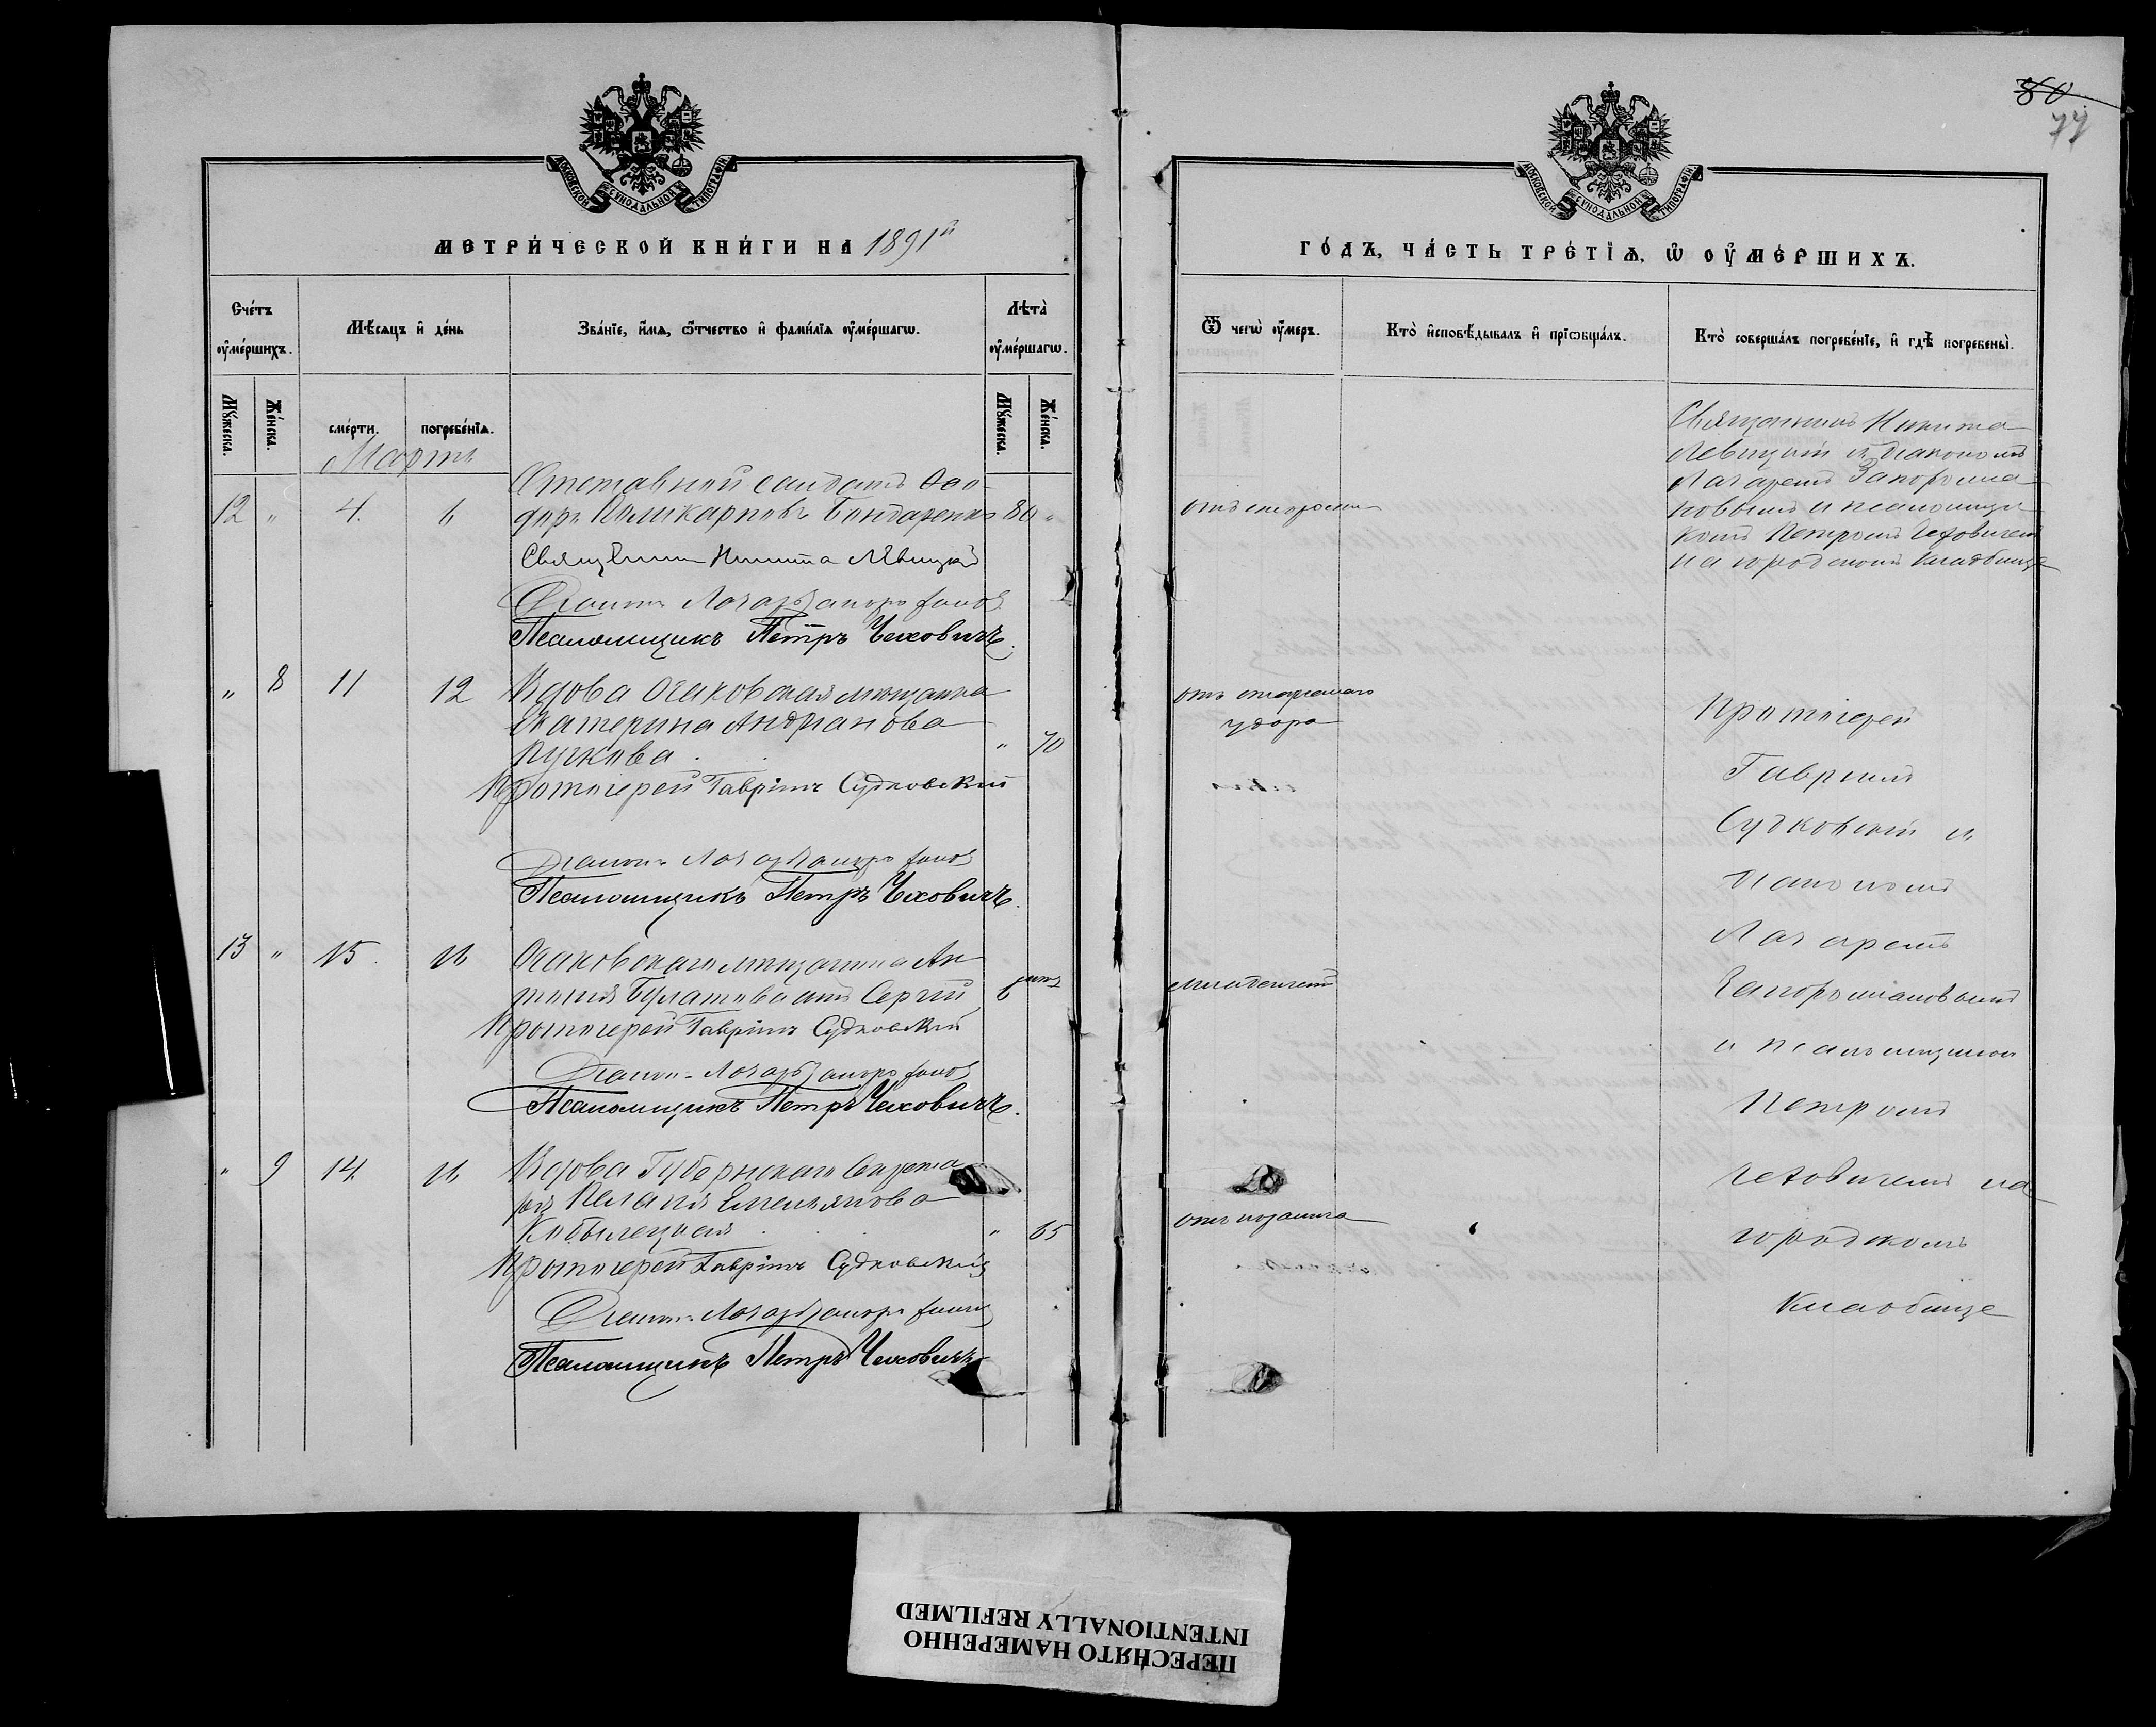 80
77
МОСКОВСКОЙ СѴНОДАЛЬНОЙ ТИПОГРАФІИ
МЕТРИ́ЧЕСКОЙ КНИ́ГИ НА 1891й
Сче́тъ ᲂу҆ме́ршихъ.
Мѣ́сяцъ и҆ де́нь
Зва́нїе, и҆́мѧ, ѻ҆́тчество и҆ фами́лїѧ ᲂу҆ме́ршагѡ.
Лѣта̀ ᲂу҆ме́ршагѡ.
Мꙋ́жеска.
Же́нска.
сме́рти.
погребе́нїѧ.
Мꙋ́жеска.
Же́нска.
Мартъ
12 " 4. 6 Отставной солдатъ Ѳео-
доръ Поликарповъ Бондаренко 80 "
Священникъ Никита Лѣвицкій
Діаконъ Лазарь Запорожановъ
Псаломщикъ Петръ Чеховичъ.
" 8 11 12 Вдова Очаковская мѣщанка
Екатерина Андріанова
Пучкова. " 70
Протоіерей Гавріилъ Судковскій
Діаконъ Лазарь
Псаломщикъ Петръ Чеховичъ.
13 " 15. 16 Очаковскаго мѣщанина Ан-
тонія Булатова сынъ Сергій 6
Протоіерей Гавріилъ Судковскій
Діаконъ Лазарь
Псаломщикъ Петръ Чеховичъ.
" 9 14. 16 Вдова Губернскаго Секрета-
ря Пелагія Емельянова
Кобылецкая " 65
Протоіерей Гавріилъ Судковскій
Діаконъ Лазарь
Псаломщикъ Петръ Чеховичъ
МОСКОВСКОЙ СѴНОДАЛЬНОЙ ТИПОГРАФІИ
ГО́ДЪ, ЧА́СТЬ ТРЕ́ТЇѦ, Ѡ҆ ОУ҆МЕ́РШИХЪ.
Ѿ чегѡ̀ ᲂу҆́меръ.
Кто̀ и҆сповѣ́дывалъ и҆ прїѡбща́лъ.
Кто̀ соверша́лъ погребе́нїе, и҆ гдѣ̀ погребены̀.
отъ старости
Священникъ Никита
Левицкій съ діакономъ
Лазаремъ Запорожа-
новымъ и псаломщи-
комъ Петромъ Чеховичемъ
на городскомъ кладбищѣ
отъ
удара
Протоіерей
Гавріилъ
Судковскій съ
діакономъ
Лазаремъ
Запорожановымъ
и псаломщикомъ
Петромъ
Чеховичемъ на
городскомъ
кладбищѣ
младенческой
ПЕРЕСНЯТО НАМЕРЕННО
INTENTIONALLY REFILMED